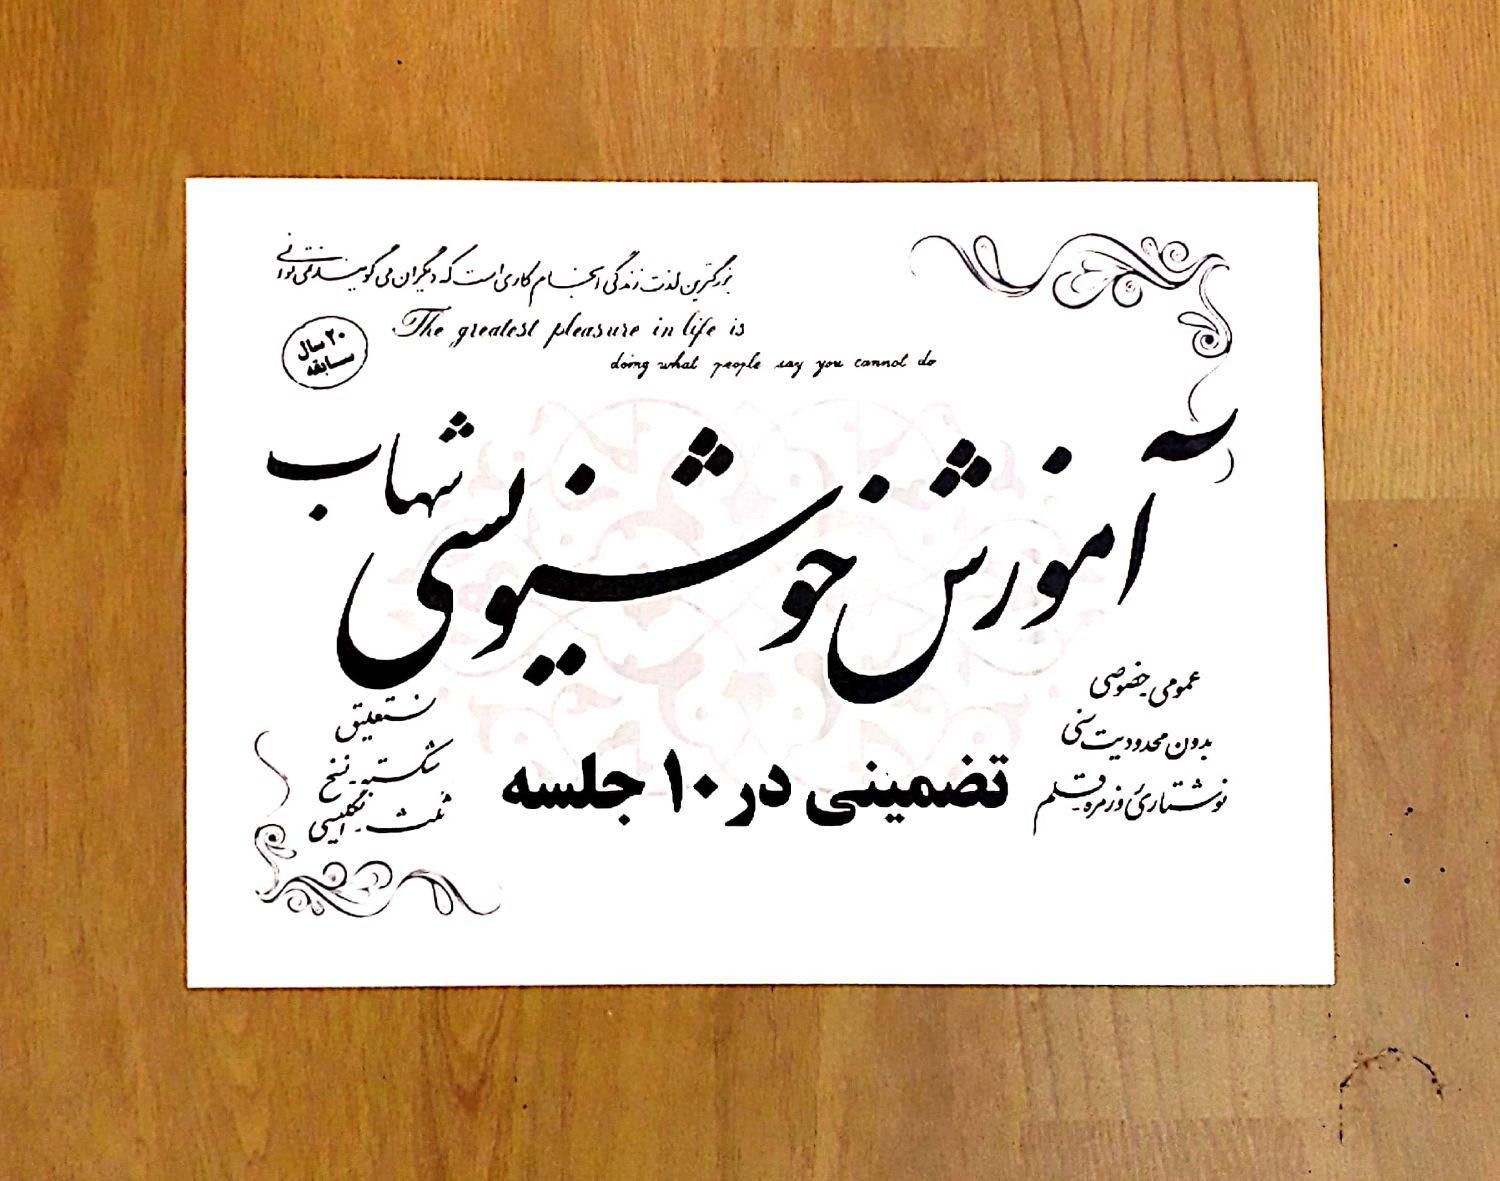 بزرگترین لذت زندگی انجام کاری است که دیگران می گویند نمی توانی
The greatest pleasure in life is
doing what people say you cannot do
۲۰ سال
سابقه
آموزش خوشنویسی شهاب
عمومی_خصوصی
بدون محدودیت سنی
نوشتاری روزمره_قلم
نستعلیق
شکسته_نسخ
ثلث_انگلیسی
تضمینی در ۱۰ جلسه